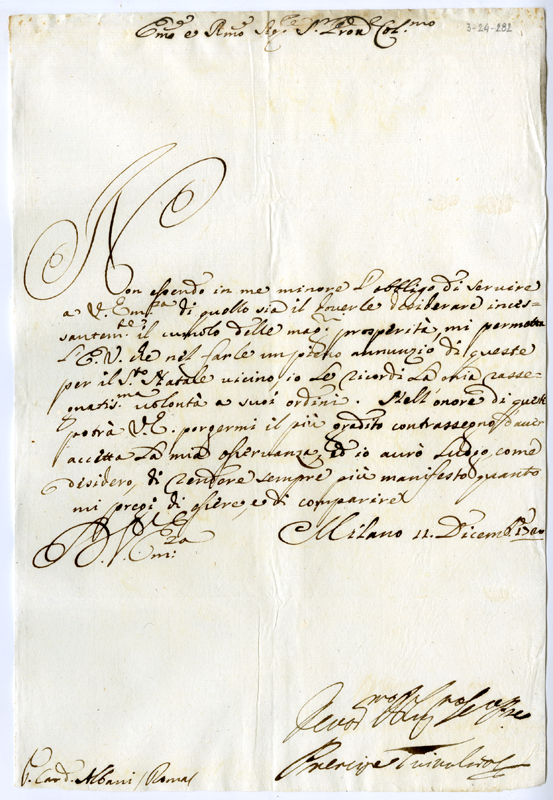 Em.o e Rmo Sig.re P.ron Col.mo
3-24-282
Non essendo in me minore l'obbligo di servire
a V. Em.za di quello sia il doverle desiderare inces-
santem.te il cumolo delle mag.ri prosperità, mi permetta
l'E. V. che nel farle un pieno annunzio di queste
per il S.to Natale vicino, io Le ricordi La mia rasse-
gnatis.ma volontà a' suoi ordini. Nell'onore di questi
potrà V.E. porgermi il più gradito contrassegno d'aver
accetta La mia osservanza, ed io avrò Luogo, come
desidero, di rendere sempre più manifesto quanto
mi pregi di essere, e di comparire
D. V. Em.za
Milano 11. Dicemb.e
Devot.mo Serv.re
Prencipe Trivulzio
S. Card. Albani Roma